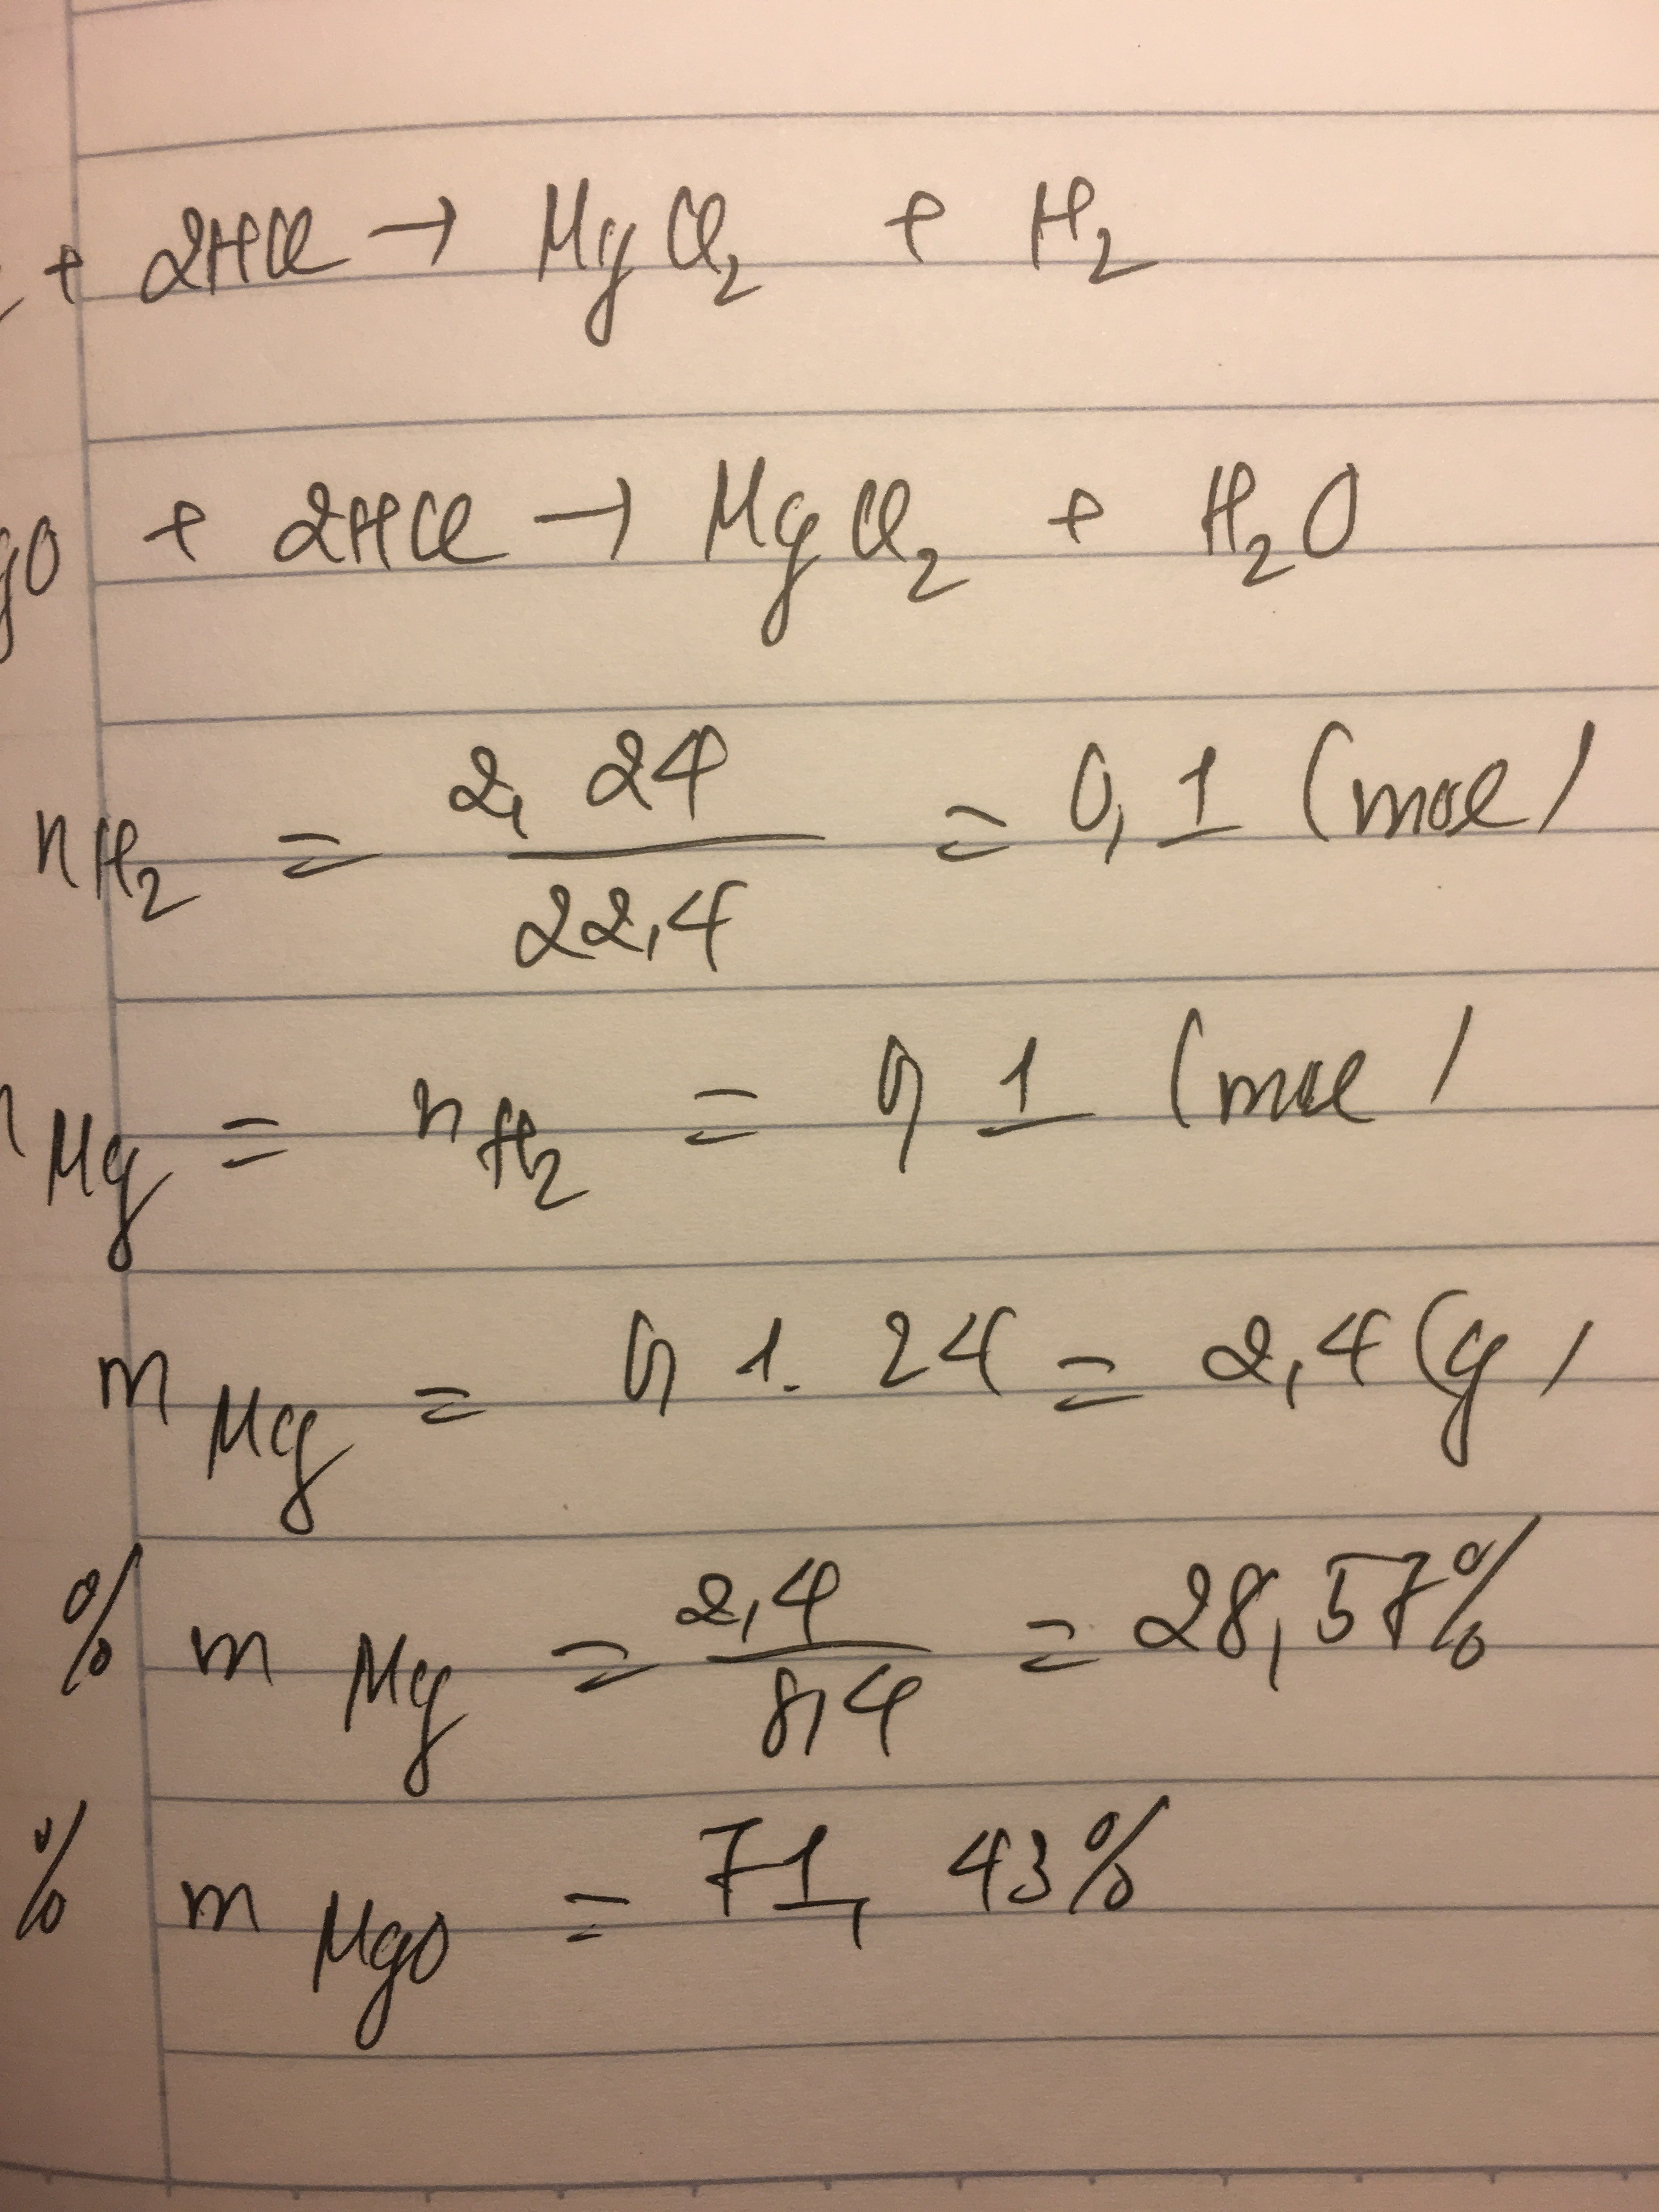 + 2HCl → MgCl₂ + H₂
gO + 2HCl → MgCl₂ + H₂O
nH₂ = 2,24 / 22,4 = 0,1 (mol)
nMg = nH₂ = 0,1 (mol)
mMg = 0,1.24 = 2,4 (g)
% mMg = 2,4 / 8,4 = 28,57%
% mMgO = 71,43%